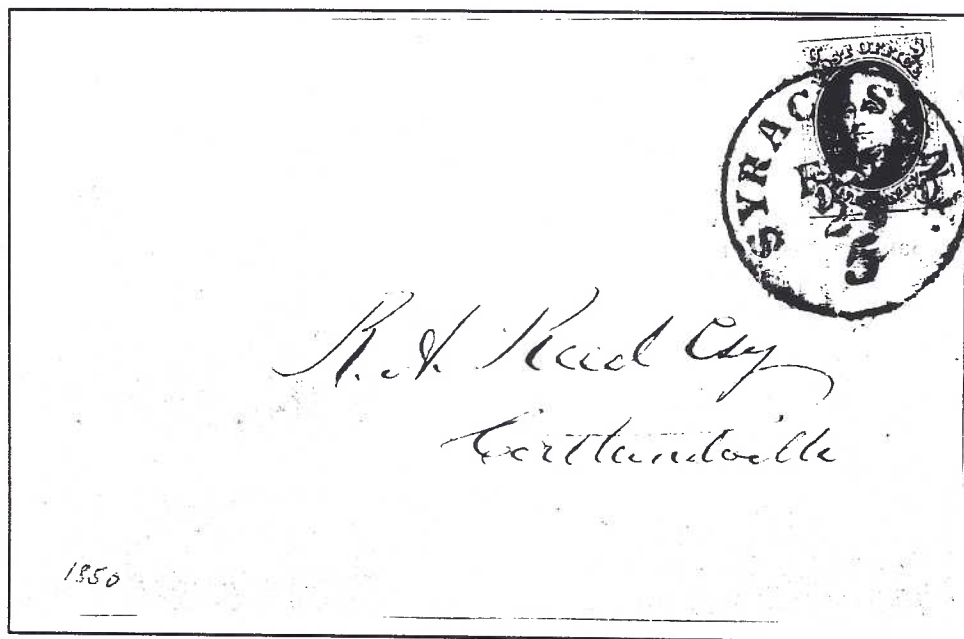 U S
POST OFFICE
SYRACUSE N.Y.
5
R. A. Reed Esq
Cortlandville
1850